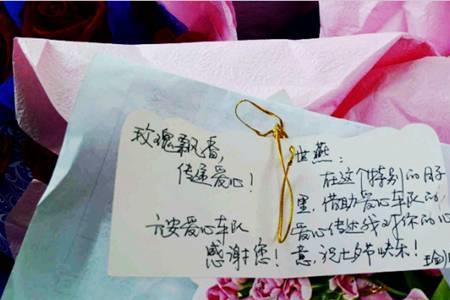 玫瑰飘香,
传递爱心!
六安爱心车队
感谢您!
世燕:
在这个特别的日子
里,借助爱心车队的
爱心传达我对你的心
意,祝七夕节快乐!